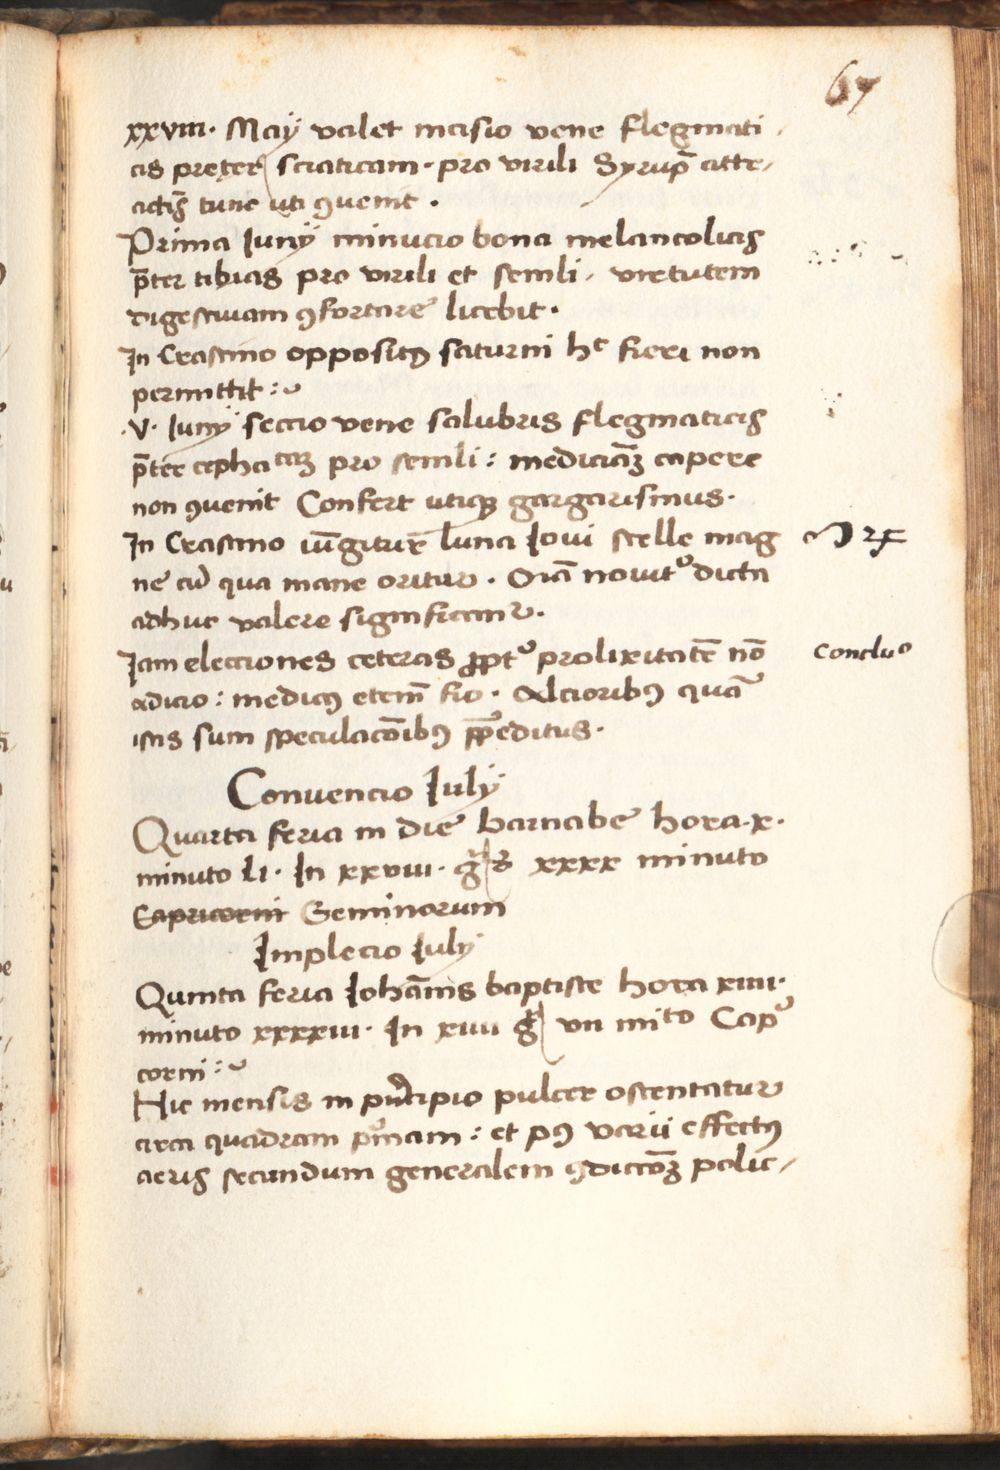 67
xxviii. Maÿ valet incisio vene flegmati
cis preter sciaticam. pro virili Syrup̄ atte/
actis tunc uti ꝯuenit.
Prima Iunÿ minucio bona melancolicis
p̄ter tibias pro virili et senili, virtutem
digestiuam ꝯfortare licebit.
In Crastino oppositꝰ saturni hᶜ fieri non
permittit:~
.V. Iunÿ seccio vene salubris flegmaticis
p̄ter cephaicaꝫ pro senili: mediciāꝫ capere
non ꝯuenit Confert utiqꝫ gargarismus.
In Crastino iūgitur luna Ioui stelle mag
ne cū qua mane oritur. Oīa nouit᷒ dicta
adhuc valere significant᷑.
☽ ♃
Iam elecciones ceteras ꝓpt᷒ prolixitatē nō
adicio: medicꝰ etem̄ sio. Alcioribꝰ quā
istis sum speculacōibꝰ p̄peditus.
Concluo
Conuencio Iulÿ
Quarta feria in die barnabe hora .x.
minuto li. In xxviii. g̊ꝭ xxxx minuto
Capricorni Geminorum
Implecio Iulÿ
Quinta feria Iohānis baptiste hora xiiii.
minuto xxxxiii. In xiiii g̊ vii miᵗᵒ Cap᷒
corni:~
Hic mensis in pⁿcipio pulcer ostentatur
circa quadram pⁱmam: et pꝰ varii effectꝰ
aeris secundum generalem ꝯdiccōꝫ polic/